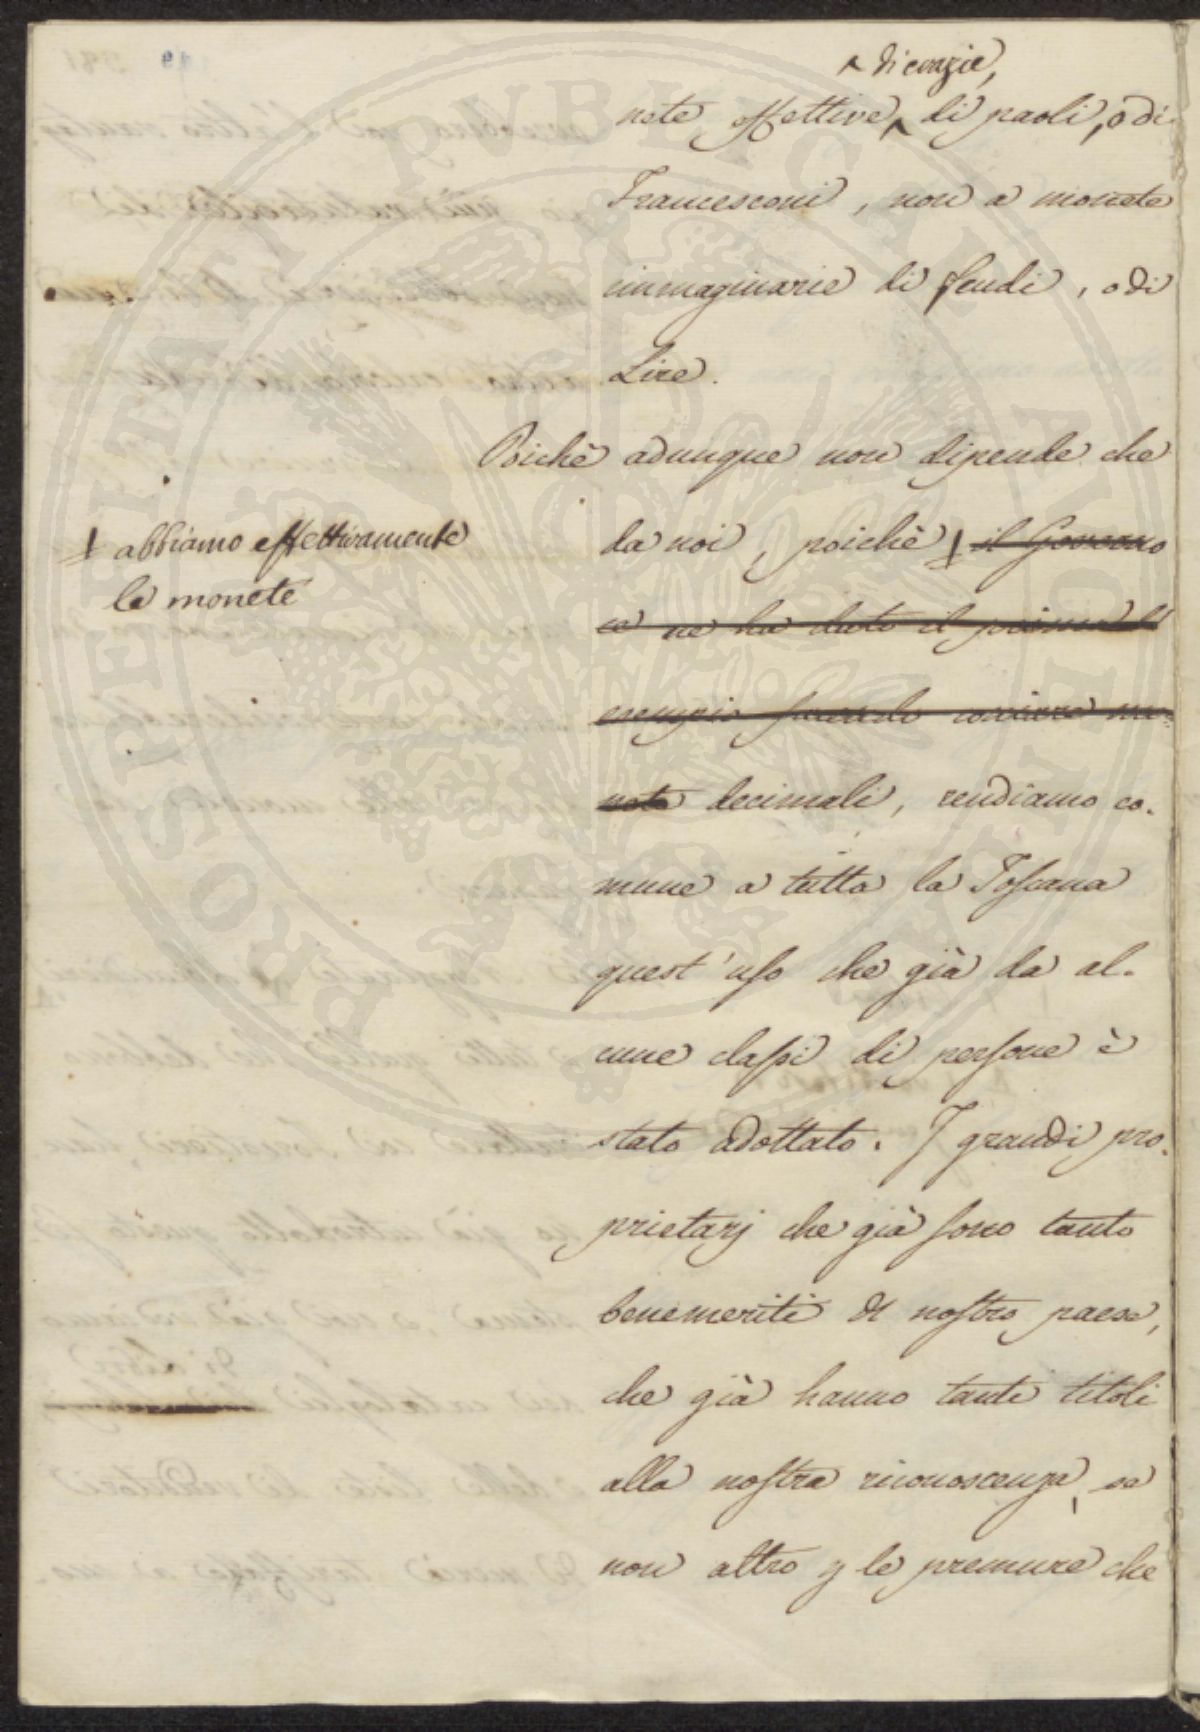 ^ di crazie,
nete effettive ^ di paoli, o di
Francesconi, non a monete
immaginarie di scudi, o di
Lire.
Poichè adunque non dipende che
da noi, poichè ‡ il Governo
‡ abbiamo effettivamente
le monete
ce ne ha dato il primo l'
esempio facendo coniare mo-
nete decimali, rendiamo co-
mune a tutta la Toscana
quest'uso che già da al-
cune classi di persone è
stato adottato. I grandi pro-
prietarj che già sono tanto
benemeriti del nostro paese,
che già hanno tanti titoli
alla nostra riconoscenza, se
non altro p le premure che
PROSPERITATI PUBLICAE AUGENDAE